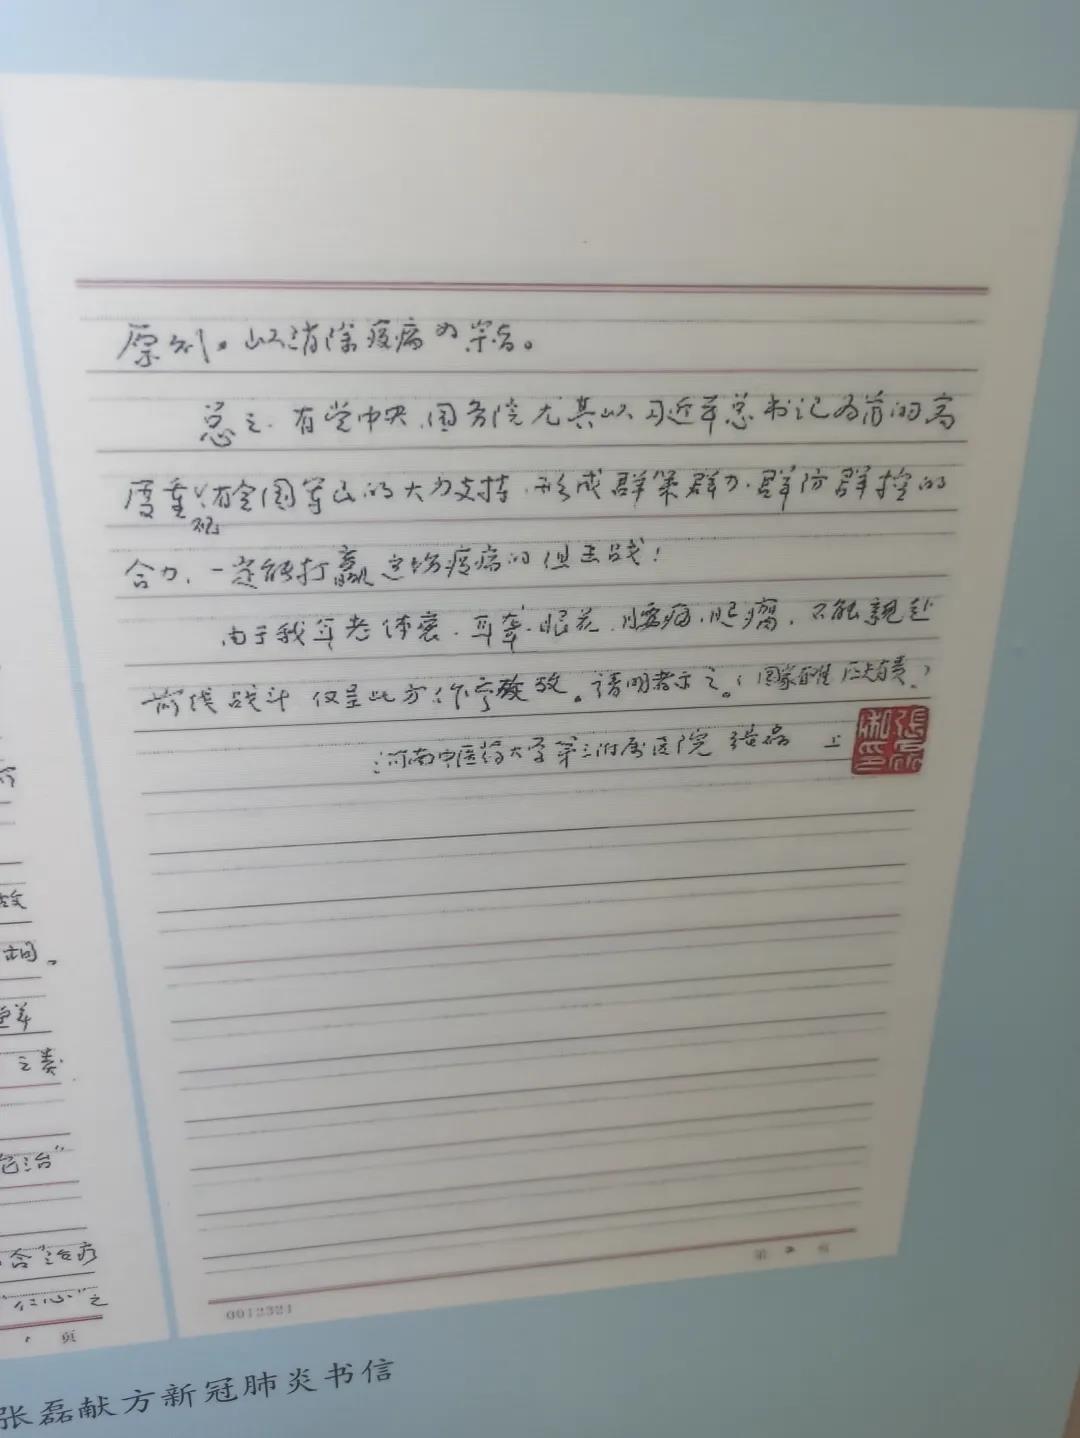 原则。以消除疫病为宗旨。
总之.有党中央、国务院尤其以习近平总书记为首的高
度重视有全国军民的大力支持,形成群策群力.群防群控的
合力、一定能打赢这场疫病的阻击战!
由于我年老体衰.耳聋.眼花、腰痛、腿痛,不能親赴
前线战斗 仅呈此方
请明者示之。(国家有难 匹夫有责)
河南中医药大学第三附属医院 张磊 上
故
之类
治"
含"治疗
"仁心"之
页
第 2 页
0012321
张磊献方新冠肺炎书信